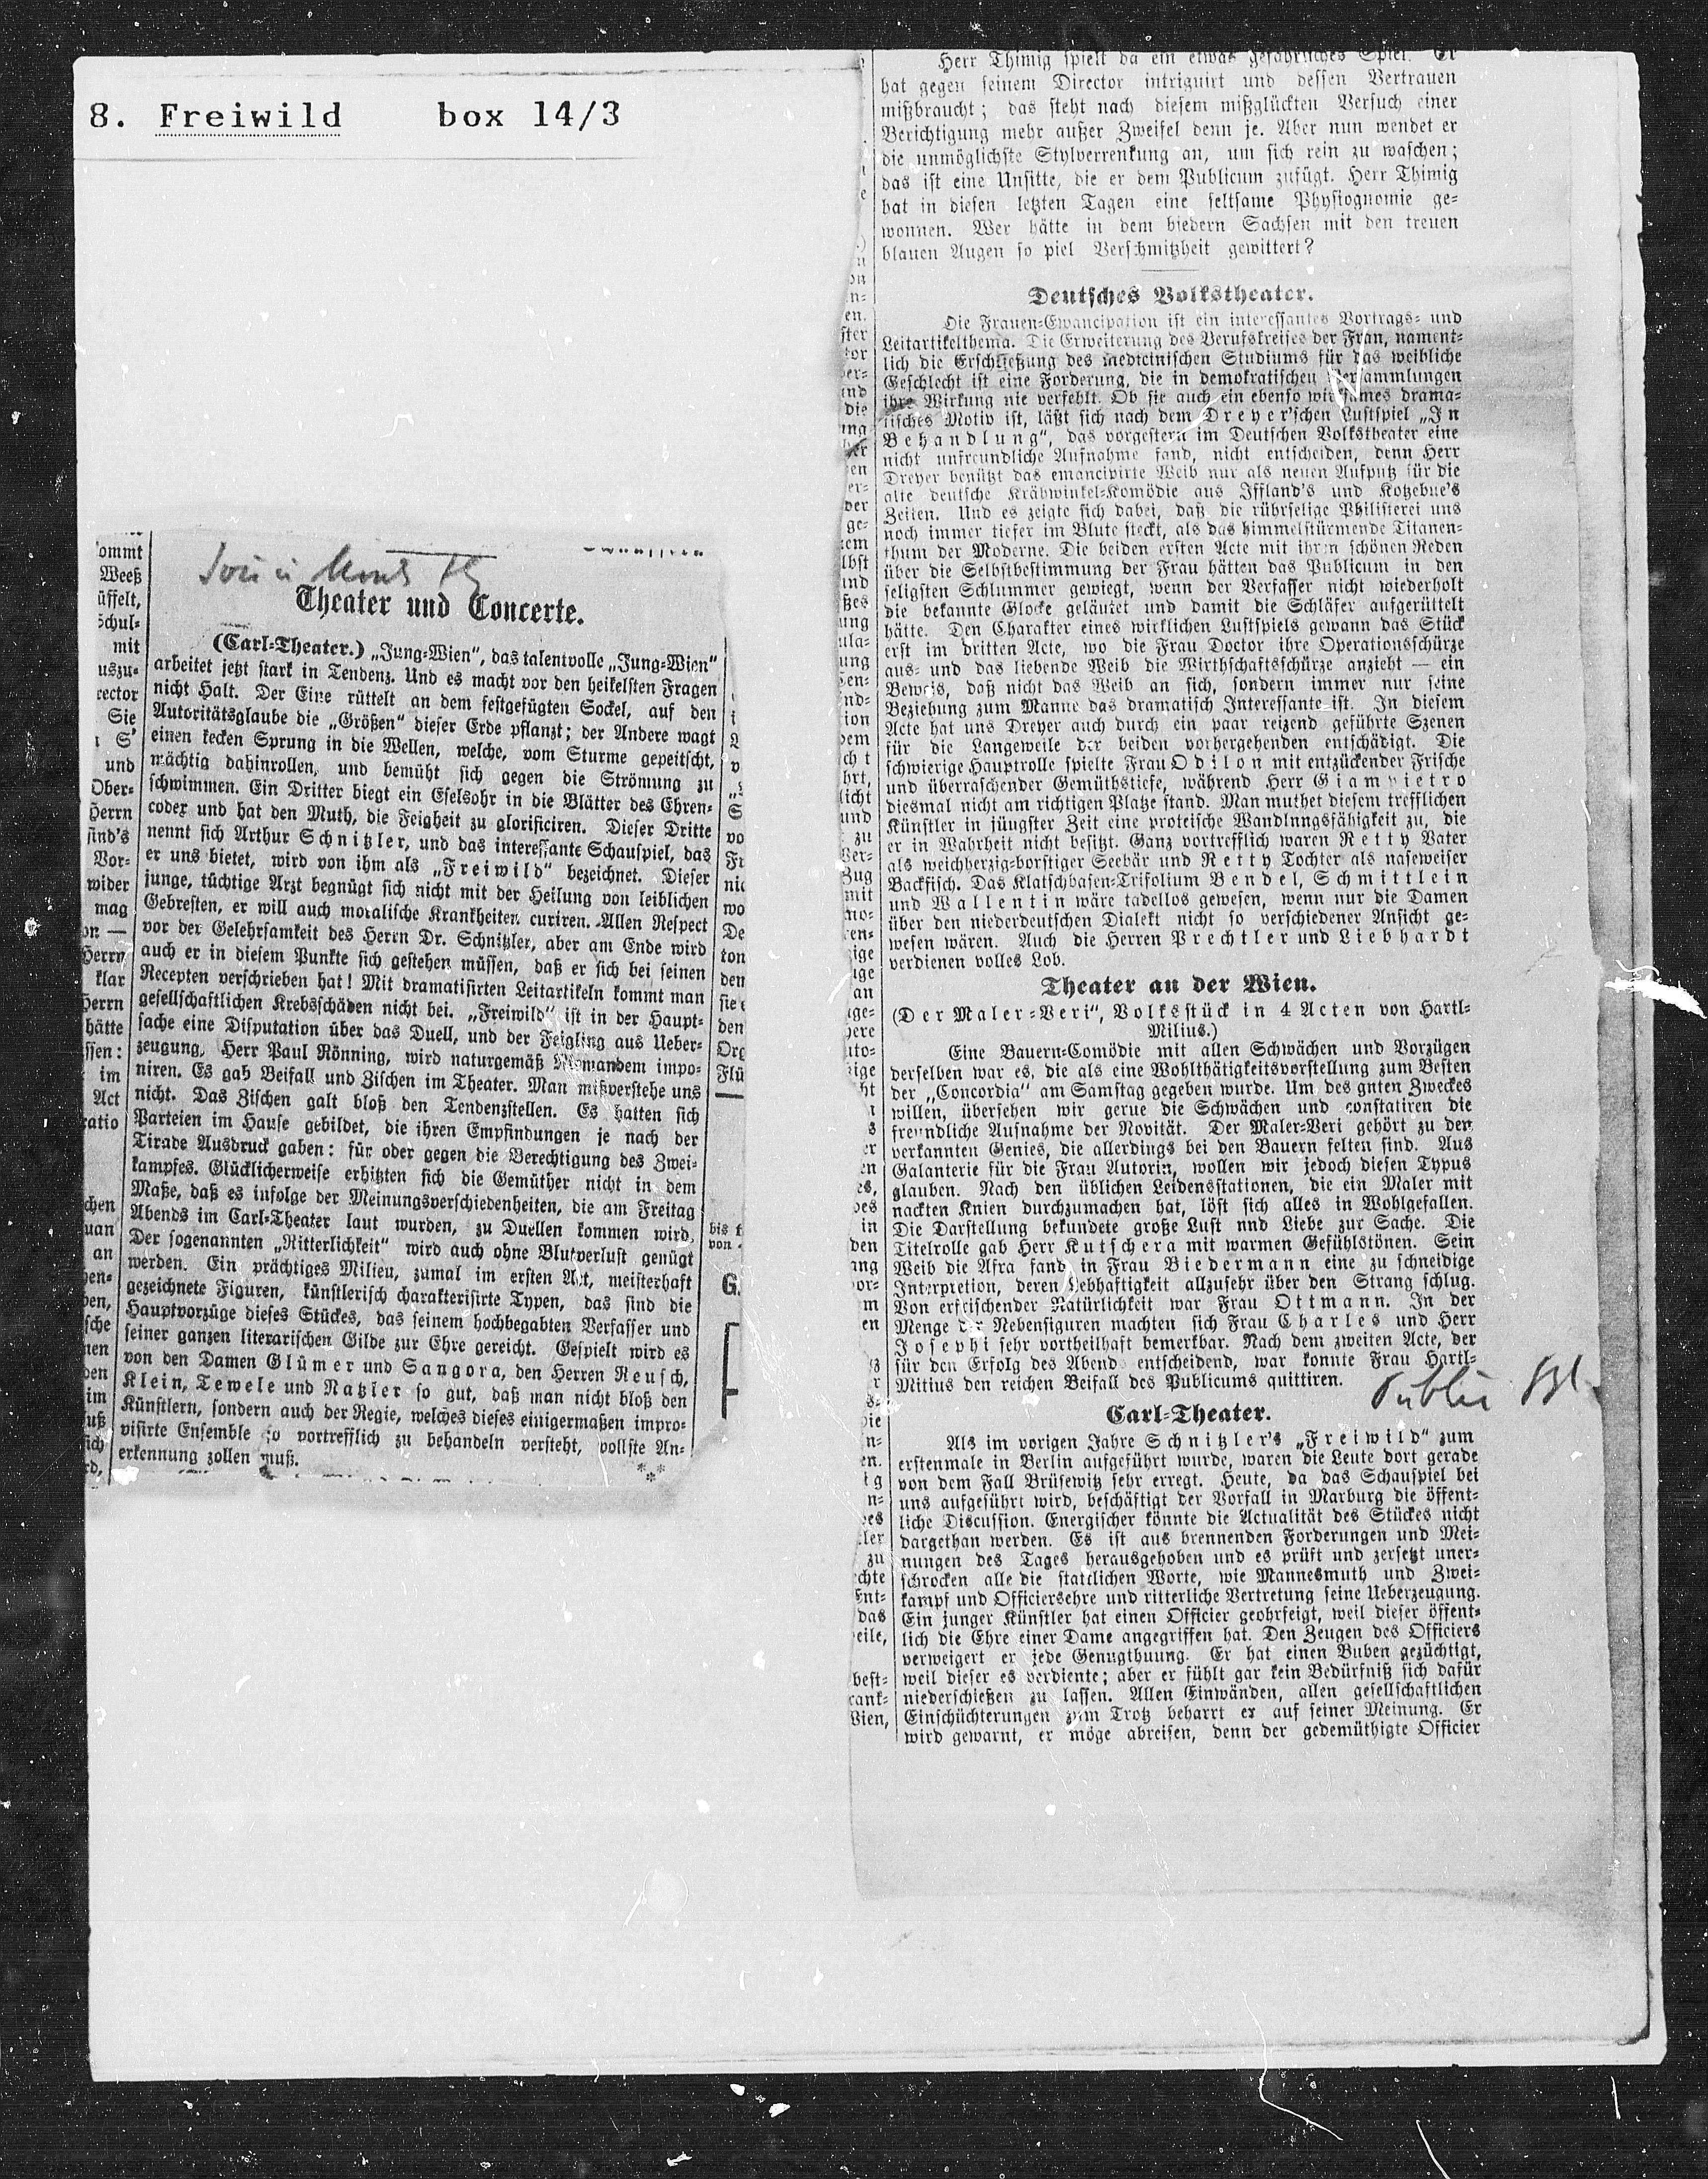 8. Freiwild box 14/3
Theater und Concerte.
(Carl-Theater.) „Jung-Wien“, das talentvolle „Jung-Wien“
arbeitet jetzt stark in Tendenz. Und es macht vor den heikelsten Fragen
nicht Halt. Der Eine rüttelt an dem festgefügten Sockel, auf den
Autoritätsglaube die „Größen“ dieser Erde pflanzt; der Andere wagt
einen kecken Sprung in die Wellen, welche, vom Sturme gepeitscht,
mächtig dahinrollen, und bemüht sich gegen die Strömung zu
schwimmen. Ein Dritter biegt ein Eselsohr in die Blätter des Ehren-
codex und hat den Muth, die Feigheit zu glorificiren. Dieser Dritte
nennt sich Arthur Schnitzler, und das interessante Schauspiel, das
er uns bietet, wird von ihm als „Freiwild“ bezeichnet. Dieser
junge, tüchtige Arzt begnügt sich nicht mit der Heilung von leiblichen
Gebresten, er will auch moralische Krankheiten curiren. Allen Respect
vor der Gelehrsamkeit des Herrn Dr. Schnitzler, aber am Ende wird
auch er in diesem Punkte sich gestehen müssen, daß er sich bei seinen
Recepten verschrieben hat! Mit dramatisirten Leitartikeln kommt man
gesellschaftlichen Krebsschäden nicht bei. „Freiwild“ ist in der Haupt-
sache eine Disputation über das Duell, und der Feigling aus Ueber-
zeugung, Herr Paul Rönning, wird naturgemäß Niemandem impo-
niren. Es gab Beifall und Zischen im Theater. Man mißverstehe uns
nicht. Das Zischen galt bloß den Tendenzstellen. Es hatten sich
Parteien im Hause gebildet, die ihren Empfindungen je nach der
Tirade Ausdruck gaben: für oder gegen die Berechtigung des Zwei-
kampfes. Glücklicherweise erhitzten sich die Gemüther nicht in dem
Maße, daß es infolge der Meinungsverschiedenheiten, die am Freitag
Abends im Carl-Theater laut wurden, zu Duellen kommen wird.
Der sogenannten „Ritterlichkeit“ wird auch ohne Blutverlust genügt
werden. Ein prächtiges Milieu, zumal im ersten Act, meisterhaft
gezeichnete Figuren, künstlerisch charakterisirte Typen, das sind die
Hauptvorzüge dieses Stückes, das seinem hochbegabten Verfasser und
seiner ganzen literarischen Gilde zur Ehre gereicht. Gespielt wird es
von den Damen Glümer und Sangora, den Herren Reusch,
Klein, Tewele und Natzler so gut, daß man nicht bloß den
Künstlern, sondern auch der Regie, welches dieses einigermaßen impro-
visirte Ensemble so vortrefflich zu behandeln versteht, vollste An-
erkennung zollen muß.
***
Herr Thimig spielt da ein etwas gefährliches Spiel. Er
hat gegen seinem Director intriguirt und dessen Vertrauen
mißbraucht; das steht nach diesem mißglückten Versuch einer
Berichtigung mehr außer Zweifel denn je. Aber nun wendet er
die unmöglichste Stylverrenkung an, um sich rein zu waschen;
das ist eine Unsitte, die er dem Publicum zufügt. Herr Thimig
hat in diesen letzten Tagen eine seltsame Physiognomie ge-
wonnen. Wer hätte in dem biedern Sachsen mit den treuen
blauen Augen so piel Verschmitzheit gewittert?
Deutsches Volkstheater.
Die Frauen-Emancipation ist ein interessantes Vortrags- und
Leitartikelthema. Die Erweiterung des Berufskreises der Frau, nament-
lich die Erschließung des medicinischen Studiums für das weibliche
Geschlecht ist eine Forderung, die in demokratischen Versammlungen
ihre Wirkung nie verfehlt. Ob sie auch ein ebenso wirksames drama-
tisches Motiv ist, läßt sich nach dem Dreyer'schen Lustspiel „In
Behandlung“, das vorgestern im Deutschen Volkstheater eine
nicht unfreundliche Aufnahme fand, nicht entscheiden, denn Herr
Dreyer benützt das emancipirte Weib nur als neuen Aufputz für die
alte deutsche Krähwinkel-Komödie aus Iffland's und Kotzebue's
Zeiten. Und es zeigte sich dabei, daß die rührselige Philisterei uns
noch immer tiefer im Blute steckt, als das himmelstürmende Titanen-
thum der Moderne. Die beiden ersten Acte mit ihren schönen Reden
über die Selbstbestimmung der Frau hätten das Publicum in den
seligsten Schlummer gewiegt, wenn der Verfasser nicht wiederholt
die bekannte Glocke geläutet und damit die Schläfer aufgerüttelt
hätte. Den Charakter eines wirklichen Lustspiels gewann das Stück
erst im dritten Acte, wo die Frau Doctor ihre Operationsschürze
aus- und das liebende Weib die Wirthschaftsschürze anzieht — ein
Beweis, daß nicht das Weib an sich, sondern immer nur seine
Beziehung zum Manne das dramatisch Interessante ist. In diesem
Acte hat uns Dreyer auch durch ein paar reizend geführte Szenen
für die Langeweile der beiden vorhergehenden entschädigt. Die
schwierige Hauptrolle spielte Frau Odilon mit entzückender Frische
und überraschender Gemüthstiefe, während Herr Giampietro
diesmal nicht am richtigen Platze stand. Man muthet diesem trefflichen
Künstler in jüngster Zeit eine proteische Wandlungsfähigkeit zu, die
er in Wahrheit nicht besitzt. Ganz vortrefflich waren Retty Vater
als weichherzig-borstiger Seebär und Retty Tochter als naseweiser
Backfisch. Das Klatschbasen-Trifolium Bendel, Schmittlein
und Wallentin wäre tadellos gewesen, wenn nur die Damen
über den niederdeutschen Dialekt nicht so verschiedener Ansicht ge-
wesen wären. Auch die Herren Prechtler und Liebhardt
verdienen volles Lob.
Theater an der Wien.
(Der Maler-Veri“, Volksstück in 4 Acten von Hartl-
Milius.)
Eine Bauern-Comödie mit allen Schwächen und Vorzügen
derselben war es, die als eine Wohlthätigkeitsvorstellung zum Besten
der „Concordia“ am Samstag gegeben wurde. Um des guten Zweckes
willen, übersehen wir gerne die Schwächen und constatiren die
freundliche Aufnahme der Novität. Der Maler-Veri gehört zu den
verkannten Genies, die allerdings bei den Bauern selten sind. Aus
Galanterie für die Frau Autorin, wollen wir jedoch diesen Typus
glauben. Nach den üblichen Leidensstationen, die ein Maler mit
nackten Knien durchzumachen hat, löst sich alles in Wohlgefallen.
Die Darstellung bekundete große Lust nnd Liebe zur Sache. Die
Titelrolle gab Herr Kutschera mit warmen Gefühlstönen. Sein
Weib die Afra fand in Frau Biedermann eine zu schneidige
Interpretion, deren Lebhaftigkeit allzusehr über den Strang schlug.
Von erfrischender Natürlichkeit war Frau Ottmann. In der
Menge der Nebenfiguren machten sich Frau Charles und Herr
Josephi sehr vortheilhaft bemerkbar. Nach dem zweiten Acte, der
für den Erfolg des Abends entscheidend, war konnte Frau Hartl-
Mitius den reichen Beifall des Publicums quittiren.
Carl-Theater.
Als im vorigen Jahre Schnitzler's „Freiwild“ zum
erstenmale in Berlin aufgeführt wurde, waren die Leute dort gerade
von dem Fall Brüsewitz sehr erregt. Heute, da das Schauspiel bei
uns aufgeführt wird, beschäftigt der Vorfall in Marburg die öffent-
liche Discussion. Energischer könnte die Actualität des Stückes nicht
dargethan werden. Es ist aus brennenden Forderungen und Mei-
nungen des Tages herausgehoben und es prüft und zersetzt uner-
schrocken alle die stattlichen Worte, wie Mannesmuth und Zwei-
kampf und Officiersehre und ritterliche Vertretung seine Ueberzeugung.
Ein junger Künstler hat einen Officier geohrfeigt, weil dieser öffent-
lich die Ehre einer Dame angegriffen hat. Den Zeugen des Officiers
verweigert er jede Genugthuung. Er hat einen Buben gezüchtigt,
weil dieser es verdiente; aber er fühlt gar kein Bedürfniß sich dafür
niederschießen zu lassen. Allen Einwänden, allen gesellschaftlichen
Einschüchterungen zum Trotz beharrt er auf seiner Meinung. Er
wird gewarnt, er möge abreisen, denn der gedemüthigte Officier